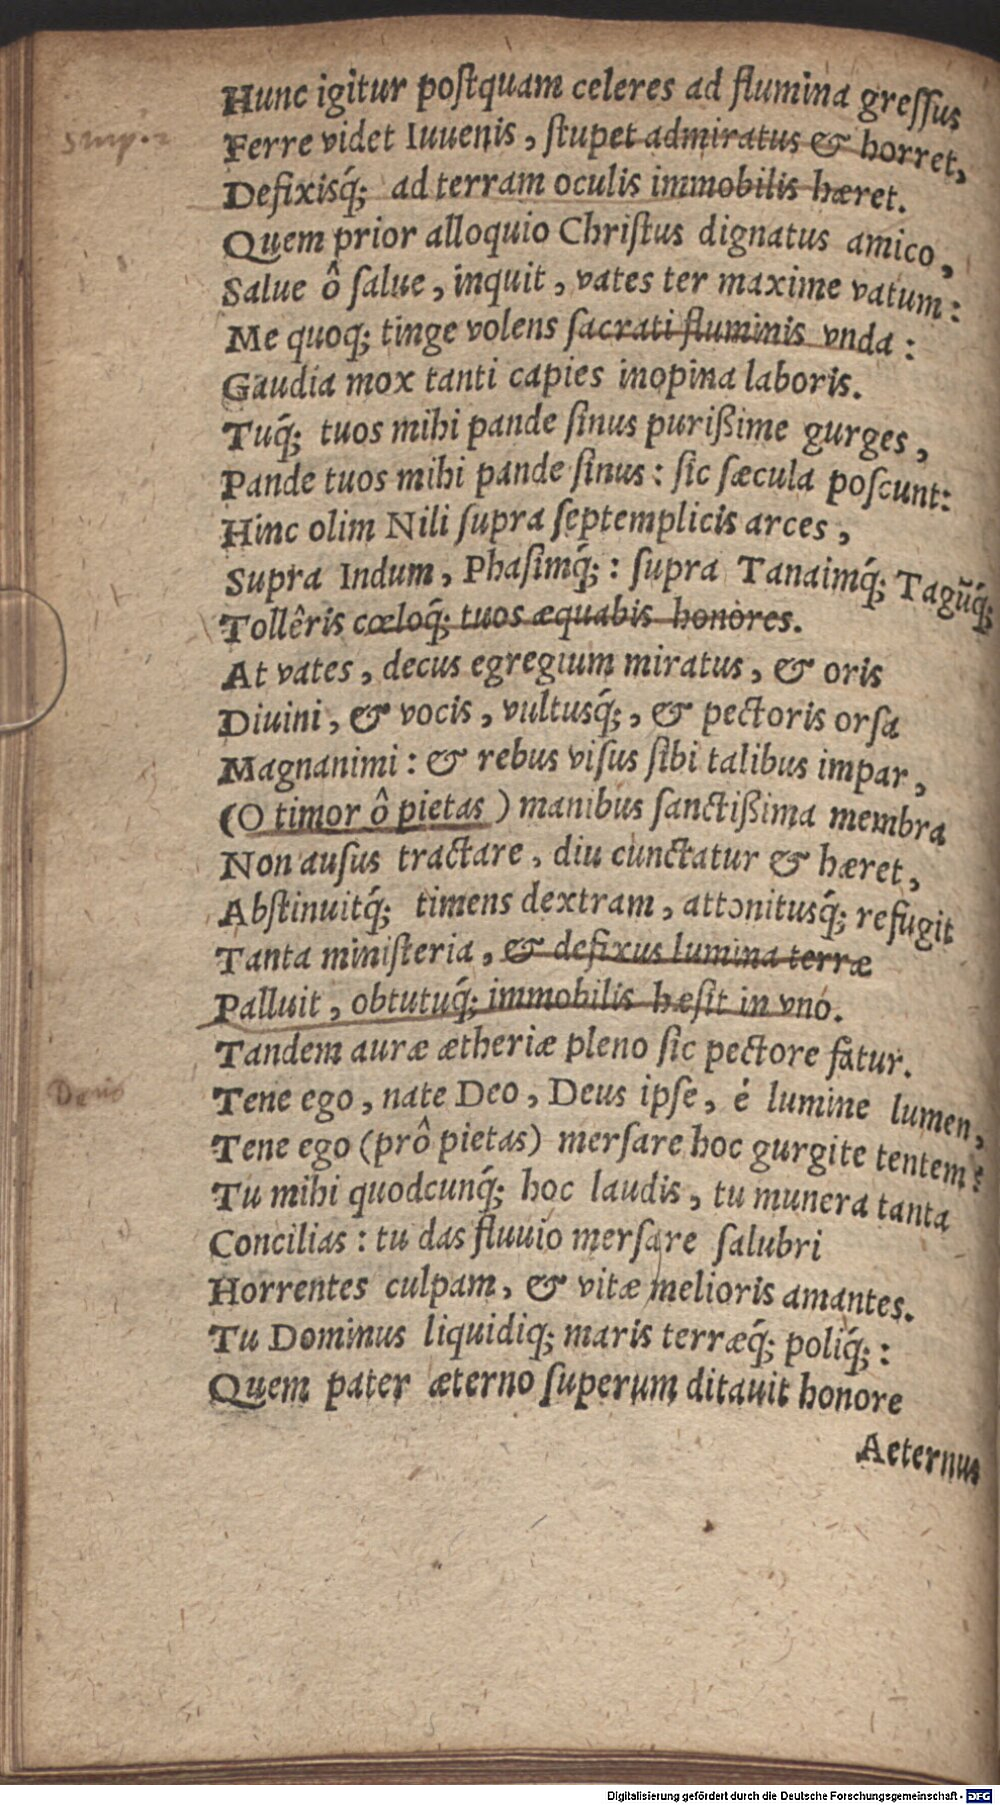 Hunc igitur poſtquam celeres ad flumina greſſus
Ferre videt Iuuenis, ſtupet admiratus & horret,
Defixisq́; ad terram oculis immobilis hæret.
Quem prior alloquio Chriſtus dignatus amico,
Salue ô ſalue, inquit, vates ter maxime vatum:
Me quoq; tinge volens ſacrati fluminis vnda:
Gaudia mox tanti capies inopina laboris.
Tuq́; tuos mihi pande ſinus purißime gurges,
Pande tuos mihi pande ſinus: ſic ſæcula poſcunt:
Hinc olim Nili ſupra ſeptemplicis arces,
Supra Indum, Phaſimq́;: ſupra Tanaimq́; Tagũq́;
Tollêris cœloq́; tuos æquabis honores.
At vates, decus egregium miratus, & oris
Diuini, & vocis, vultusq́;, & pectoris orſa
Magnanimi: & rebus viſus ſibi talibus impar,
(O timor ô pietas) manibus ſanctißima membra
Non auſus tractare, diu cunctatur & hæret,
Abſtinuitq́; timens dextram, attonitusq́; refugit
Tanta miniſteria, & defixus lumina terræ
Palluit, obtutuq́; immobilis hæſit in vno.
Tandem auræ ætheriæ pleno ſic pectore fatur.
Tene ego, nate Deo, Deus ipſe, é lumine lumen,
Tene ego (prô pietas) merſare hoc gurgite tentem?
Tu mihi quodcunq́; hoc laudis, tu munera tanta
Concilias: tu das fluuio merſare ſalubri
Horrentes culpam, & vitæ melioris amantes.
Tu Dominus liquidiq; maris terræq́; poliq́;:
Quem pater æterno ſuperum ditauit honore
Aeternus
Digitalisierung gefördert durch die Deutsche Forschungsgemeinschaft - DFG